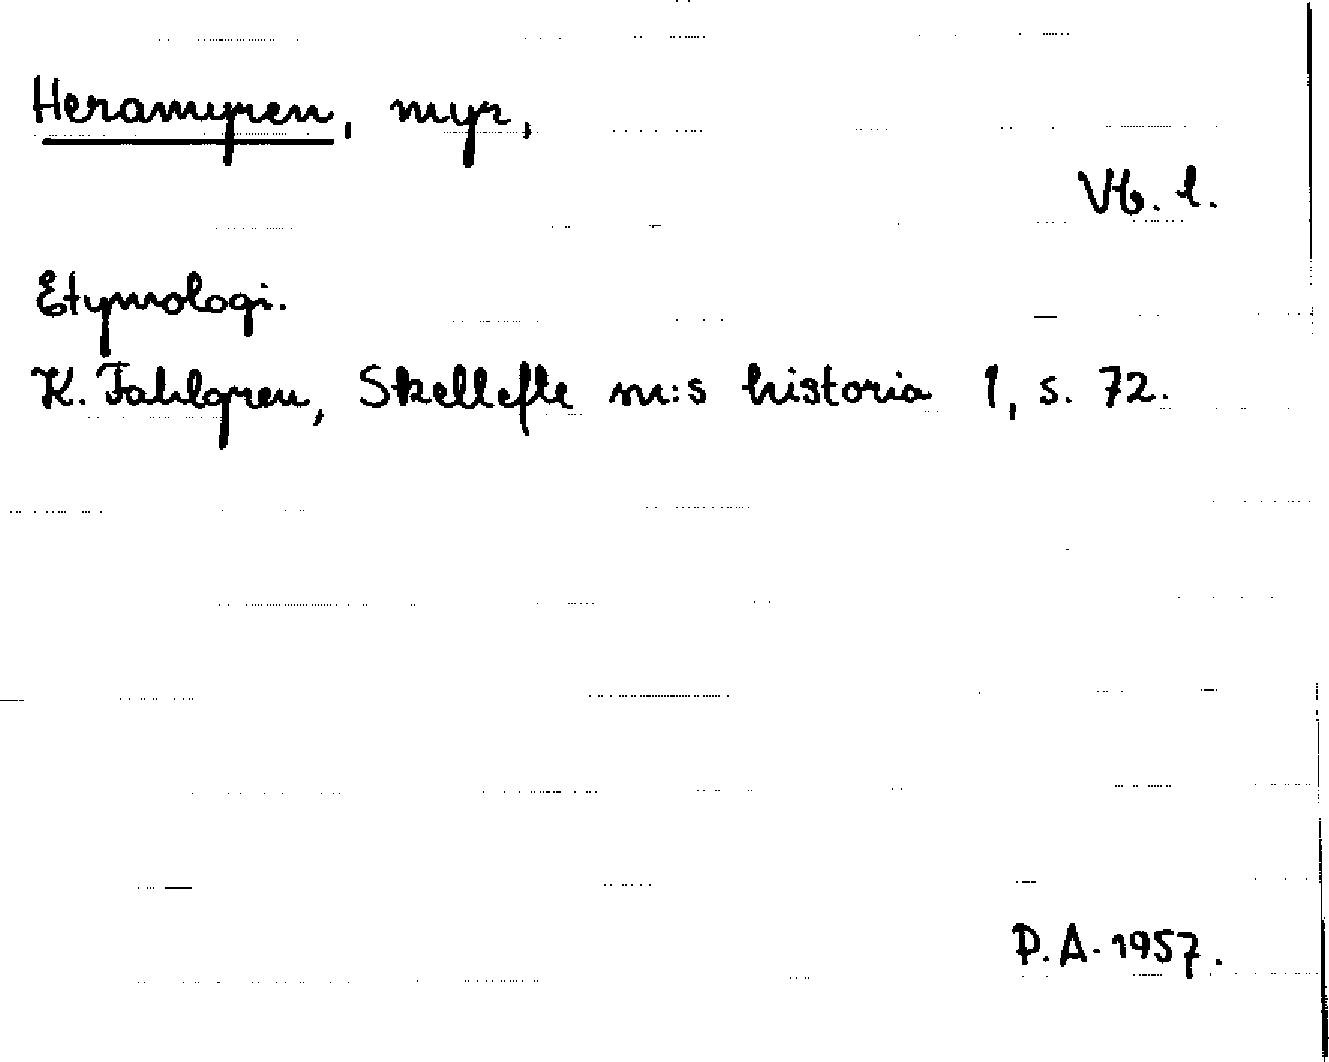 Heramyren, myr,
Vb. l.
Etymologi.
K. Fahlgren, Skellefte sn:s historia 1, s. 72.
P. A. 1957.